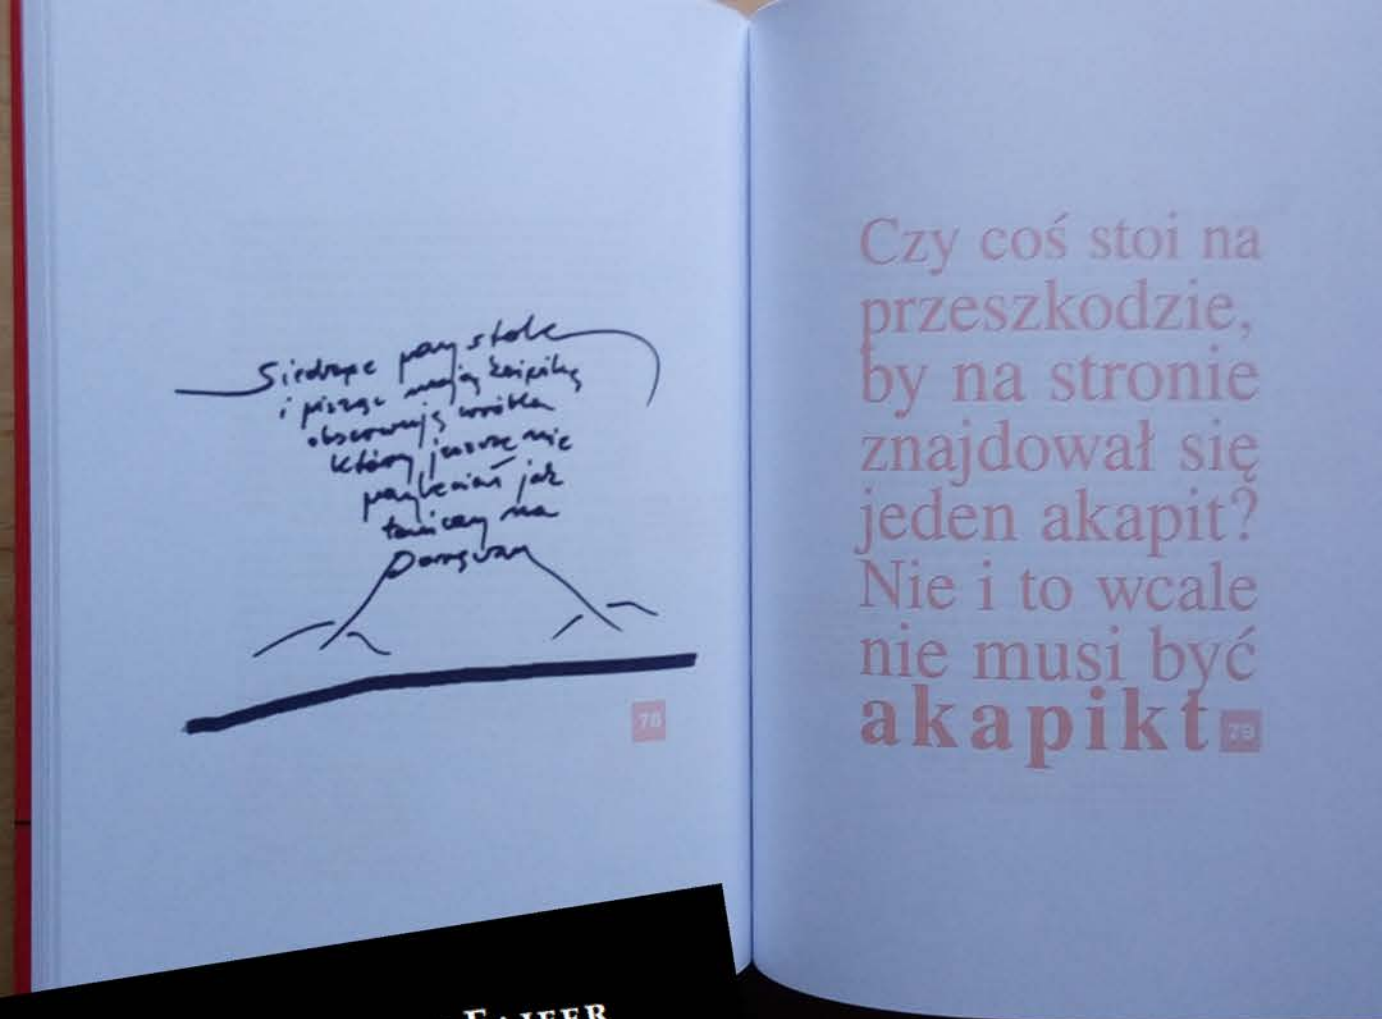 Siedząc przy stole
i pisząc moją książkę
obserwuję wróbla
który jeszcze nie
jak
tańczy na
78
Czy coś stoi na
przeszkodzie,
by na stronie
znajdował się
jeden akapit?
Nie i to wcale
nie musi być
akapikt
79
FAJFER